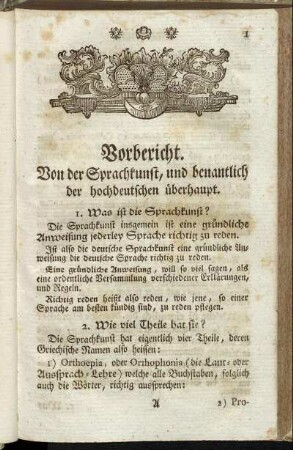 1
Vorbericht.
Von der Sprachkunst, und benantlich
der hochdeutschen überhaupt.
1. Was ist die Sprachkunst?
Die Sprachkunst insgemein ist eine gründliche
Anweisung jederley Sprache richtig zu reden.
Ist also die deutsche Sprachkunst eine gründliche An-
weisung die deutsche Sprache richtig zu reden.
Eine gründliche Anweisung, will so viel sagen, als
eine ordentliche Versammlung verschiedener Erklärungen,
und Regeln.
Richtig reden heißt also reden, wie jene, so einer
Sprache am besten kündig sind, zu reden pflegen.
2. Wie viel Theile hat sie?
Die Sprachkunst hat eigentlich vier Theile, deren
Griechische Namen also heissen:
1) Orthoepia, oder Orthophonia (die Laut- oder
Aussprach-Lehre) welche alle Buchstaben, folglich
auch die Wörter, richtig aussprechen:
A 2) Pro-